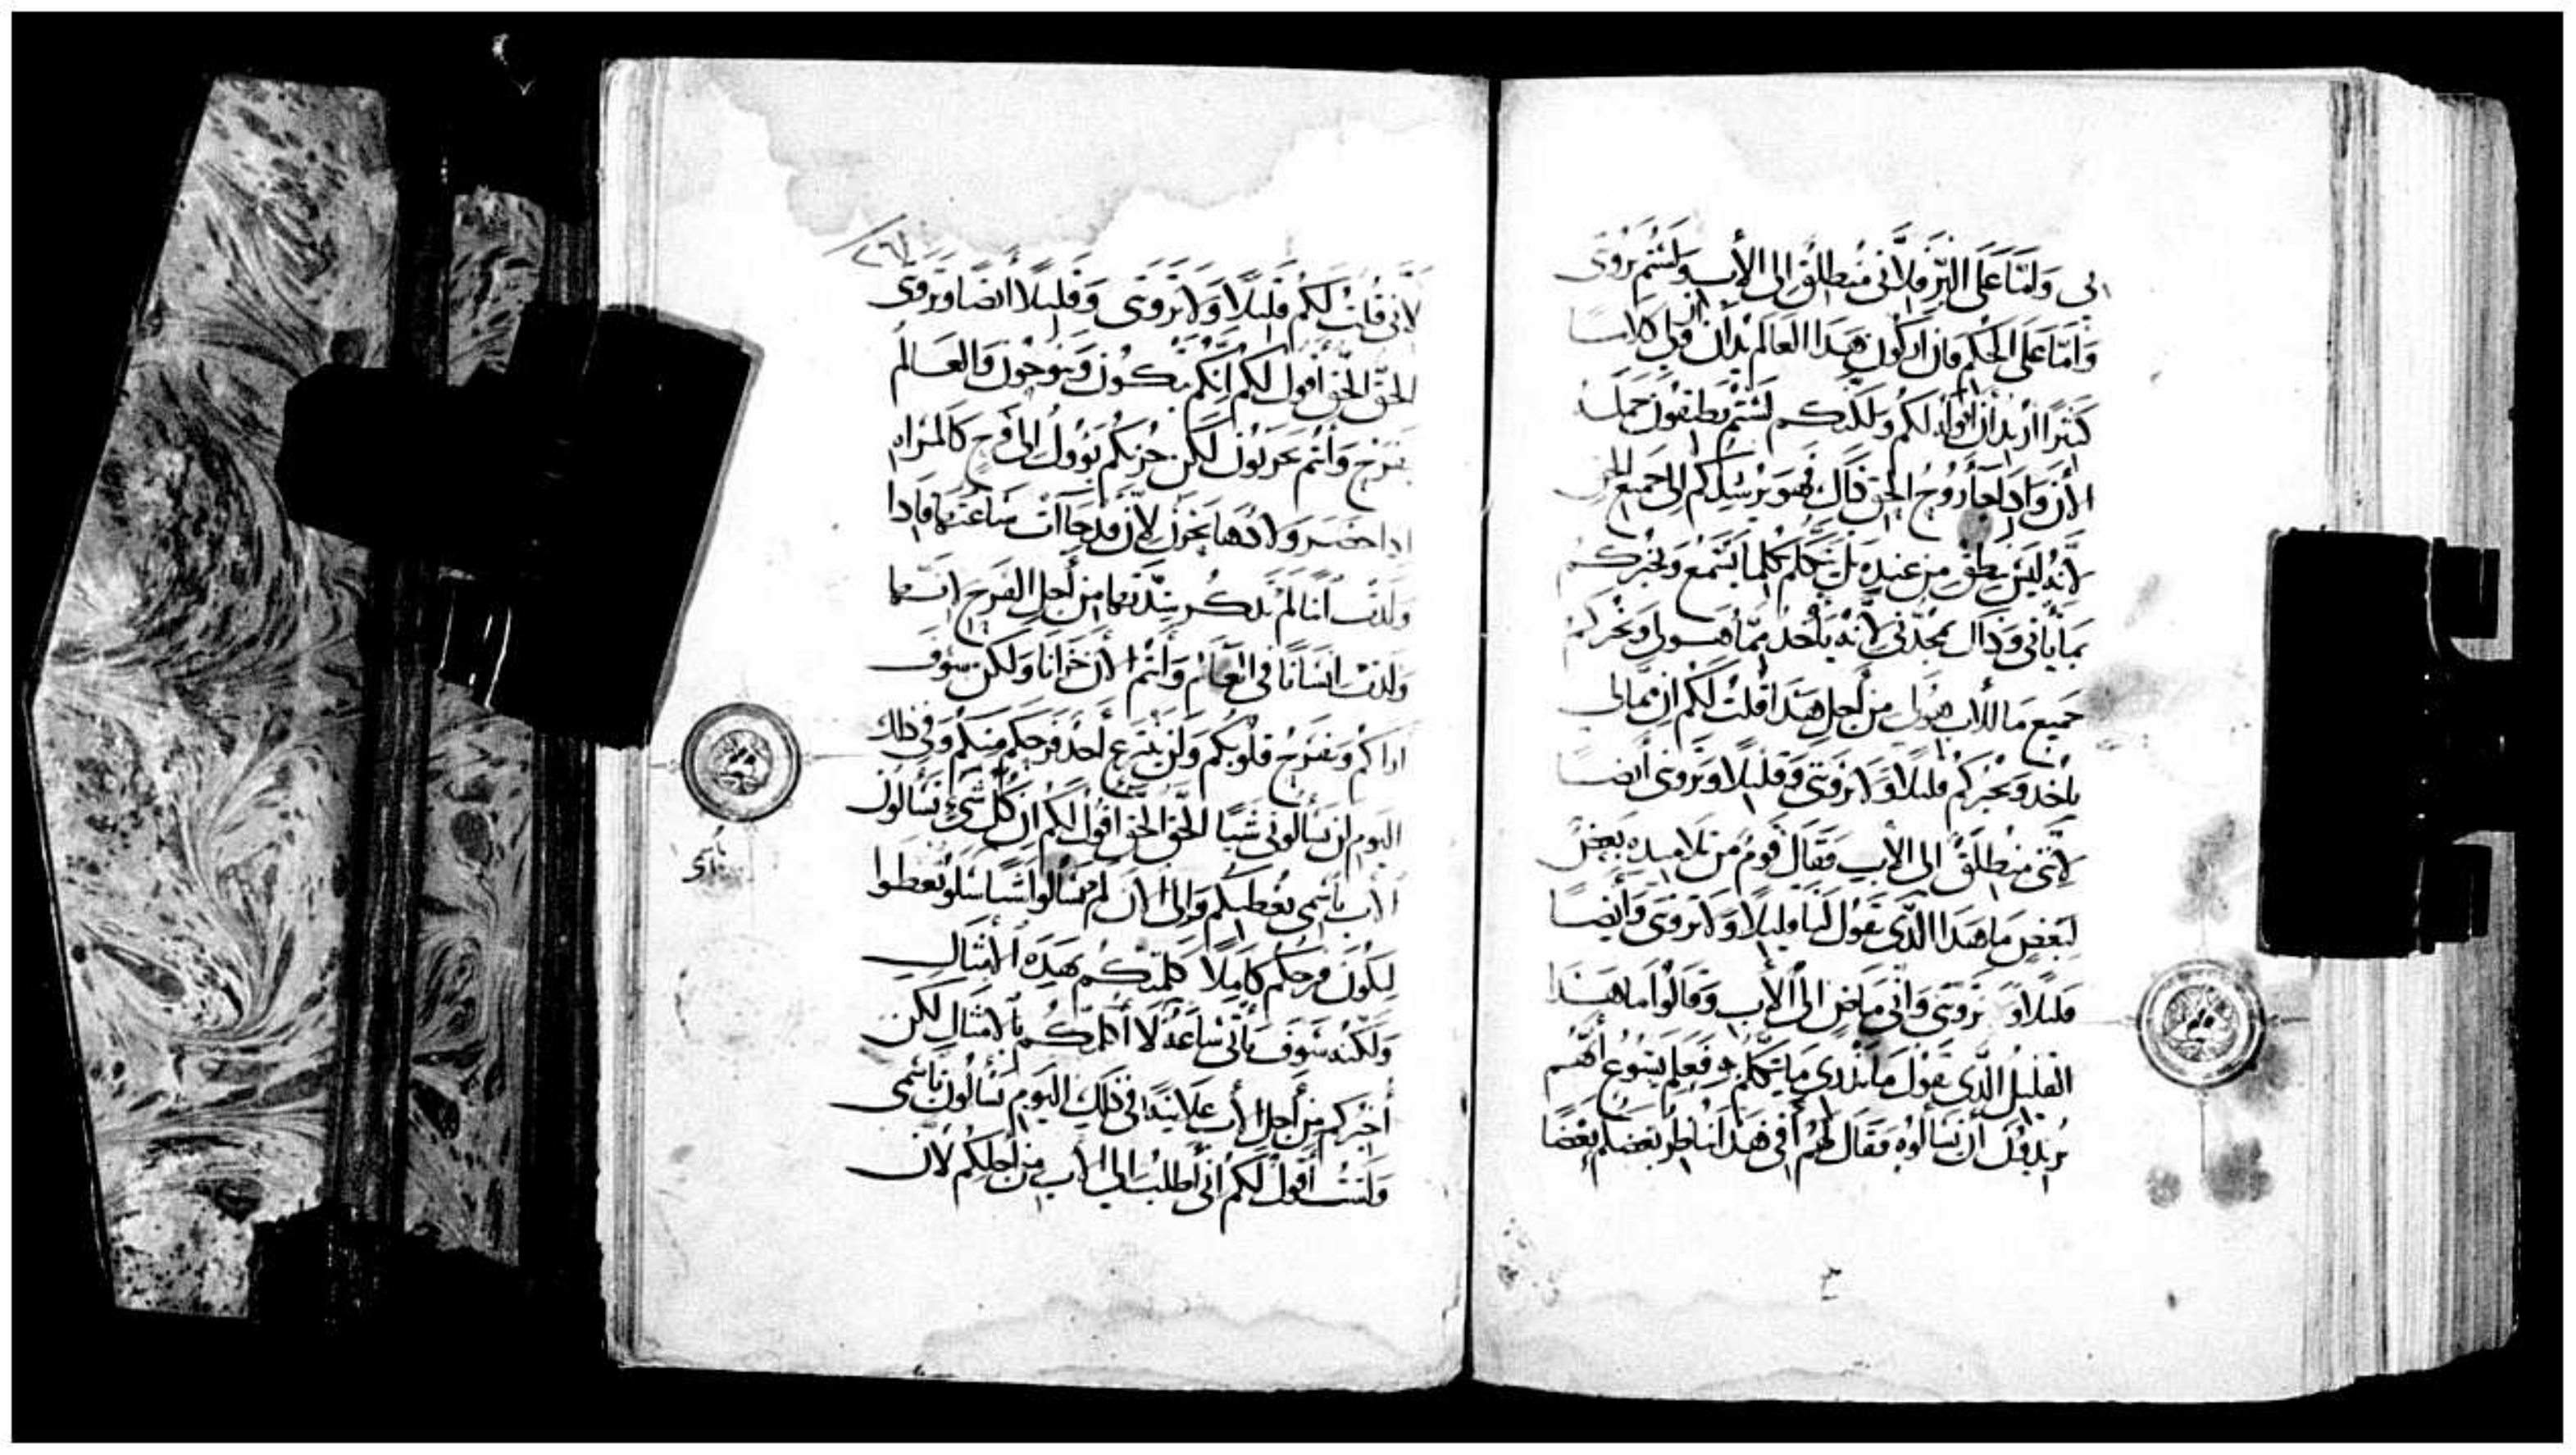 بي وَلمَّا عَلَى البّر فلاني مُنطلق الى الأب وَلستم تروني
وَامّا عَلى الحكم فان اركون هَدا العَالم يُدان وَان لي كلامًا
كثيرًا اريد أن اقوله لكم وَلكنكم لستم تطيقون حمله
الأن وَادا جَآ رُوحُ الحق داك فهو يرشدكم الى جَميع الحق
لانّه ليسَ ينطق من عندِه بل يتكلم كلما يسمع وَيُخبركم
بما يأتي وَداك يمجدني لانه يأخد ممّا هو لي وَيخبركم
جَميع مَا للاب هو لي من أجل هَدا قلت لكم ان ممّا لي
يأخد وَيخبركم قليلًا وَلا تروني وَقليلا وَتروني أيضًا
لانّني منطلقٌ الى الأب فقال قومٌ من تلاميده بَعضٌ
لبَعضٍ مَا هَدا الدّي يقول لنا قليلًا وَلا تروني وَأيضًا
قليلا وَ تروني وَاني مَاضٍ الى الأب وَقالوا ما هَدا
القليل الدّي يقول مَا ندري مَا يتكلم به فعلم يسُوع أنهُم
يريدون أن يسَألوه فقال لهُم أفي هَدا يناظر بَعضكم بَعضًا
٢٦١
لاني قلت لكم قليلًا وَلا تروني وَقليلا ايضا وتروني
الحقّ الحق اقول لكم انكم تبكون وَتنوحُون وَالعَالم
يفرح وَأنتم تحزنون لكن حزنكم يؤول الى فرح كالمراه
ادا حضر ولادُها تحزن لان قد جَاأت سَاعتهَا فادا
وَلدت ابنا لم تدكر شدتها من أجل الفرح انها
وَلدت انسَانًا في العَالم وَأنتم الأن حَزانا وَلكن سوف
اراكم وَتفرحُ قلوبكم وَلن ينتزع أحد فرحكم منكم وَفي ذلك
اليوم لن تسألوني شيًا الحقّ الحق اقول لكم ان كل شَيٍ تسَألون
الأب باسمي يعطيكم وَالى الأن لم تسَالوا شيا سَلوا تعطوا
ليكون فرحكم كاملًا كلمتكم بهَده الأمثال
وَلكنه سَوف يأتي سَاعة لا اكلمكم بالأمثال لكن
أخبركم من أجل الأب عَلانيّة في ذلك اليوم تسَألون باسمي
وَلستُ أقولُ لكم اني أطلب الى الأب من أجلكم لان